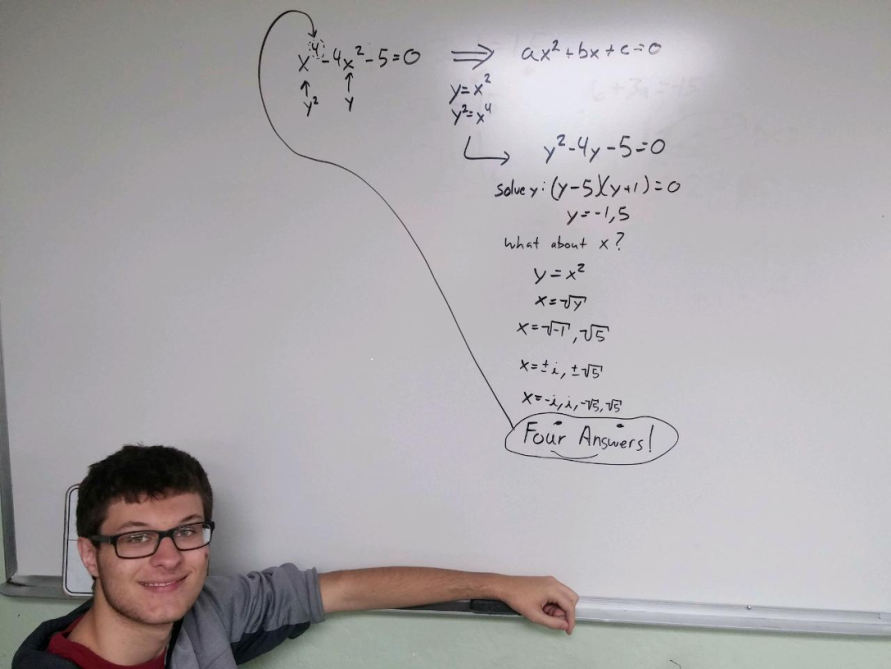 x⁴-4x²-5=0 ⇒ ax²+bx+c=0
↑ y² ↑ y
y=x²
y²=x⁴
y²-4y-5=0
solve y: (y-5)(y+1)=0
y=-1,5
What about x?
y=x²
x=√y
x=√-1,√5
x=±i,±√5
x=-i,i,-√5,√5
Four Answers!